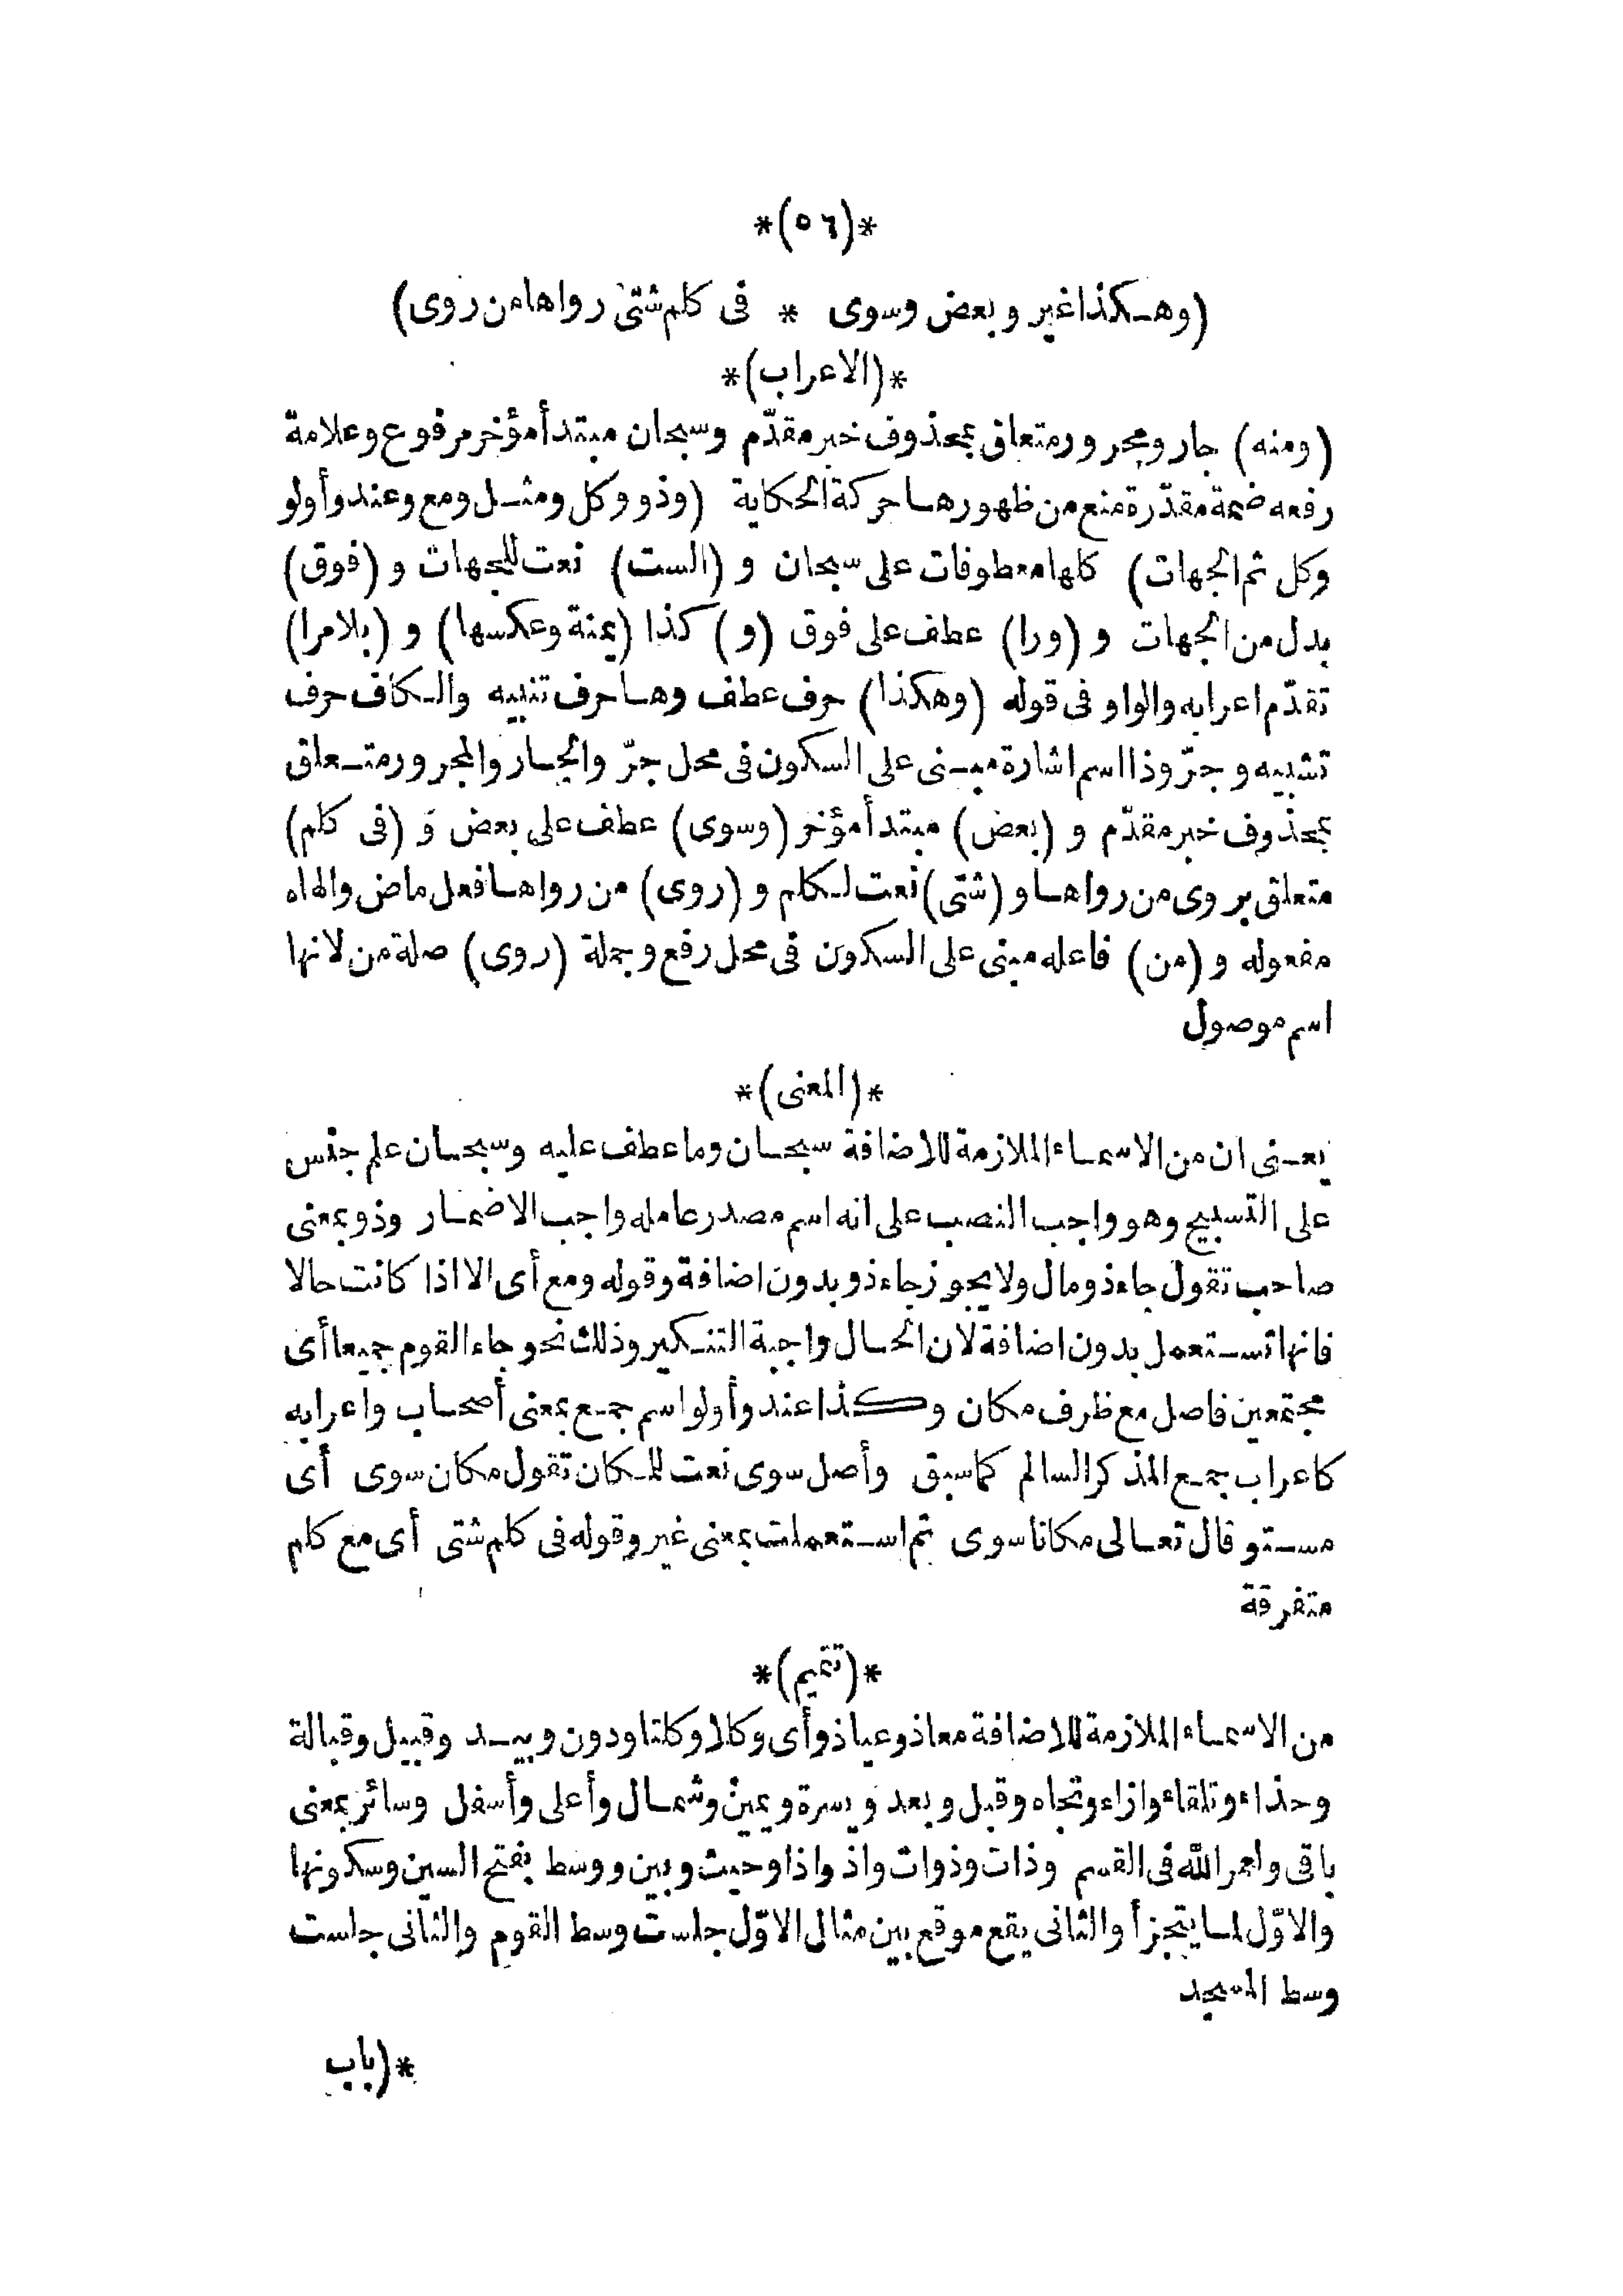 *(٥٦)*
(وهكذا غير وبعض وسوى * فى كلم شتى رواها من روى)
*(الاعراب)*
(ومنه) جار ومجرور متعلق بمحذوف خبر مقدّم وسبحان مبتدأ مؤخر مرفوع وعلامة
رفعه ضمة مقدّرة منع من ظهورها حركة الحكاية (وذو وكل ومثل ومع وعند وأولو
وكل ثم الجهات) كلها معطوفات على سبحان و (الست) نعت للجهات و (فوق)
بدل من الجهات و (ورا) عطف على فوق (و) كذا (يمنة وعكسها) و (بلا مرا)
تقدّم اعرابه والواو فى قوله (وهكذا) حرف عطف وها حرف تنبيه والكاف حرف
تشبيه وجرّ وذا اسم اشارة مبنى على السكون فى محل جرّ والجار والمجرور متعلق
بمحذوف خبر مقدّم و (بعض) مبتدأ مؤخر (وسوى) عطف على بعض و (فى كلم)
متعلق بروى من رواها و (شتى) نعت لكلم و (روى) من رواها فعل ماض والهاء
مفعوله و (من) فاعله مبنى على السكون فى محل رفع وجملة (روى) صلة من لانها
اسم موصول
*(المعنى)*
يعنى ان من الاسماء الملازمة للاضافة سبحان وما عطف عليه وسبحان علم جنس
على التسبيح وهو واجب النصب على انه اسم مصدر عامله واجب الاضمار وذو بمعنى
صاحب تقول جاء ذو مال ولا يجوز جاء ذو بدون اضافة وقوله ومع أى الا اذا كانت حالا
فانها تستعمل بدون اضافة لان الحال واجبة التنكير وذلك نحو جاء القوم جميعا أى
مجتمعين فاصل مع ظرف مكان وكذا عند وأولو اسم جمع بمعنى أصحاب واعرابه
كاعراب جمع المذكر السالم كما سبق وأصل سوى نعت للمكان تقول مكان سوى أى
مستو قال تعالى مكانا سوى ثم استعملت بمعنى غير وقوله فى كلم شتى أى مع كلم
متفرقة
*(تتميم)*
من الاسماء الملازمة للاضافة معاذ وعياذ وأى وكلا وكلتا ودون وبيد وقبيل وقبالة
وحذاء وتلقاء وازاء وتجاه وقبل وبعد ويسرة ويمين وشمال وأعلى وأسفل وسائر بمعنى
باقى ولعمر الله فى القسم وذات وذوات واذ واذا وحيث وبين ووسط بفتح السين وسكونها
والاوّل لما يتجزأ والثانى يقع موقع بين مثال الاوّل جلست وسط القوم والثانى جلست
وسط المسجد
*(باب